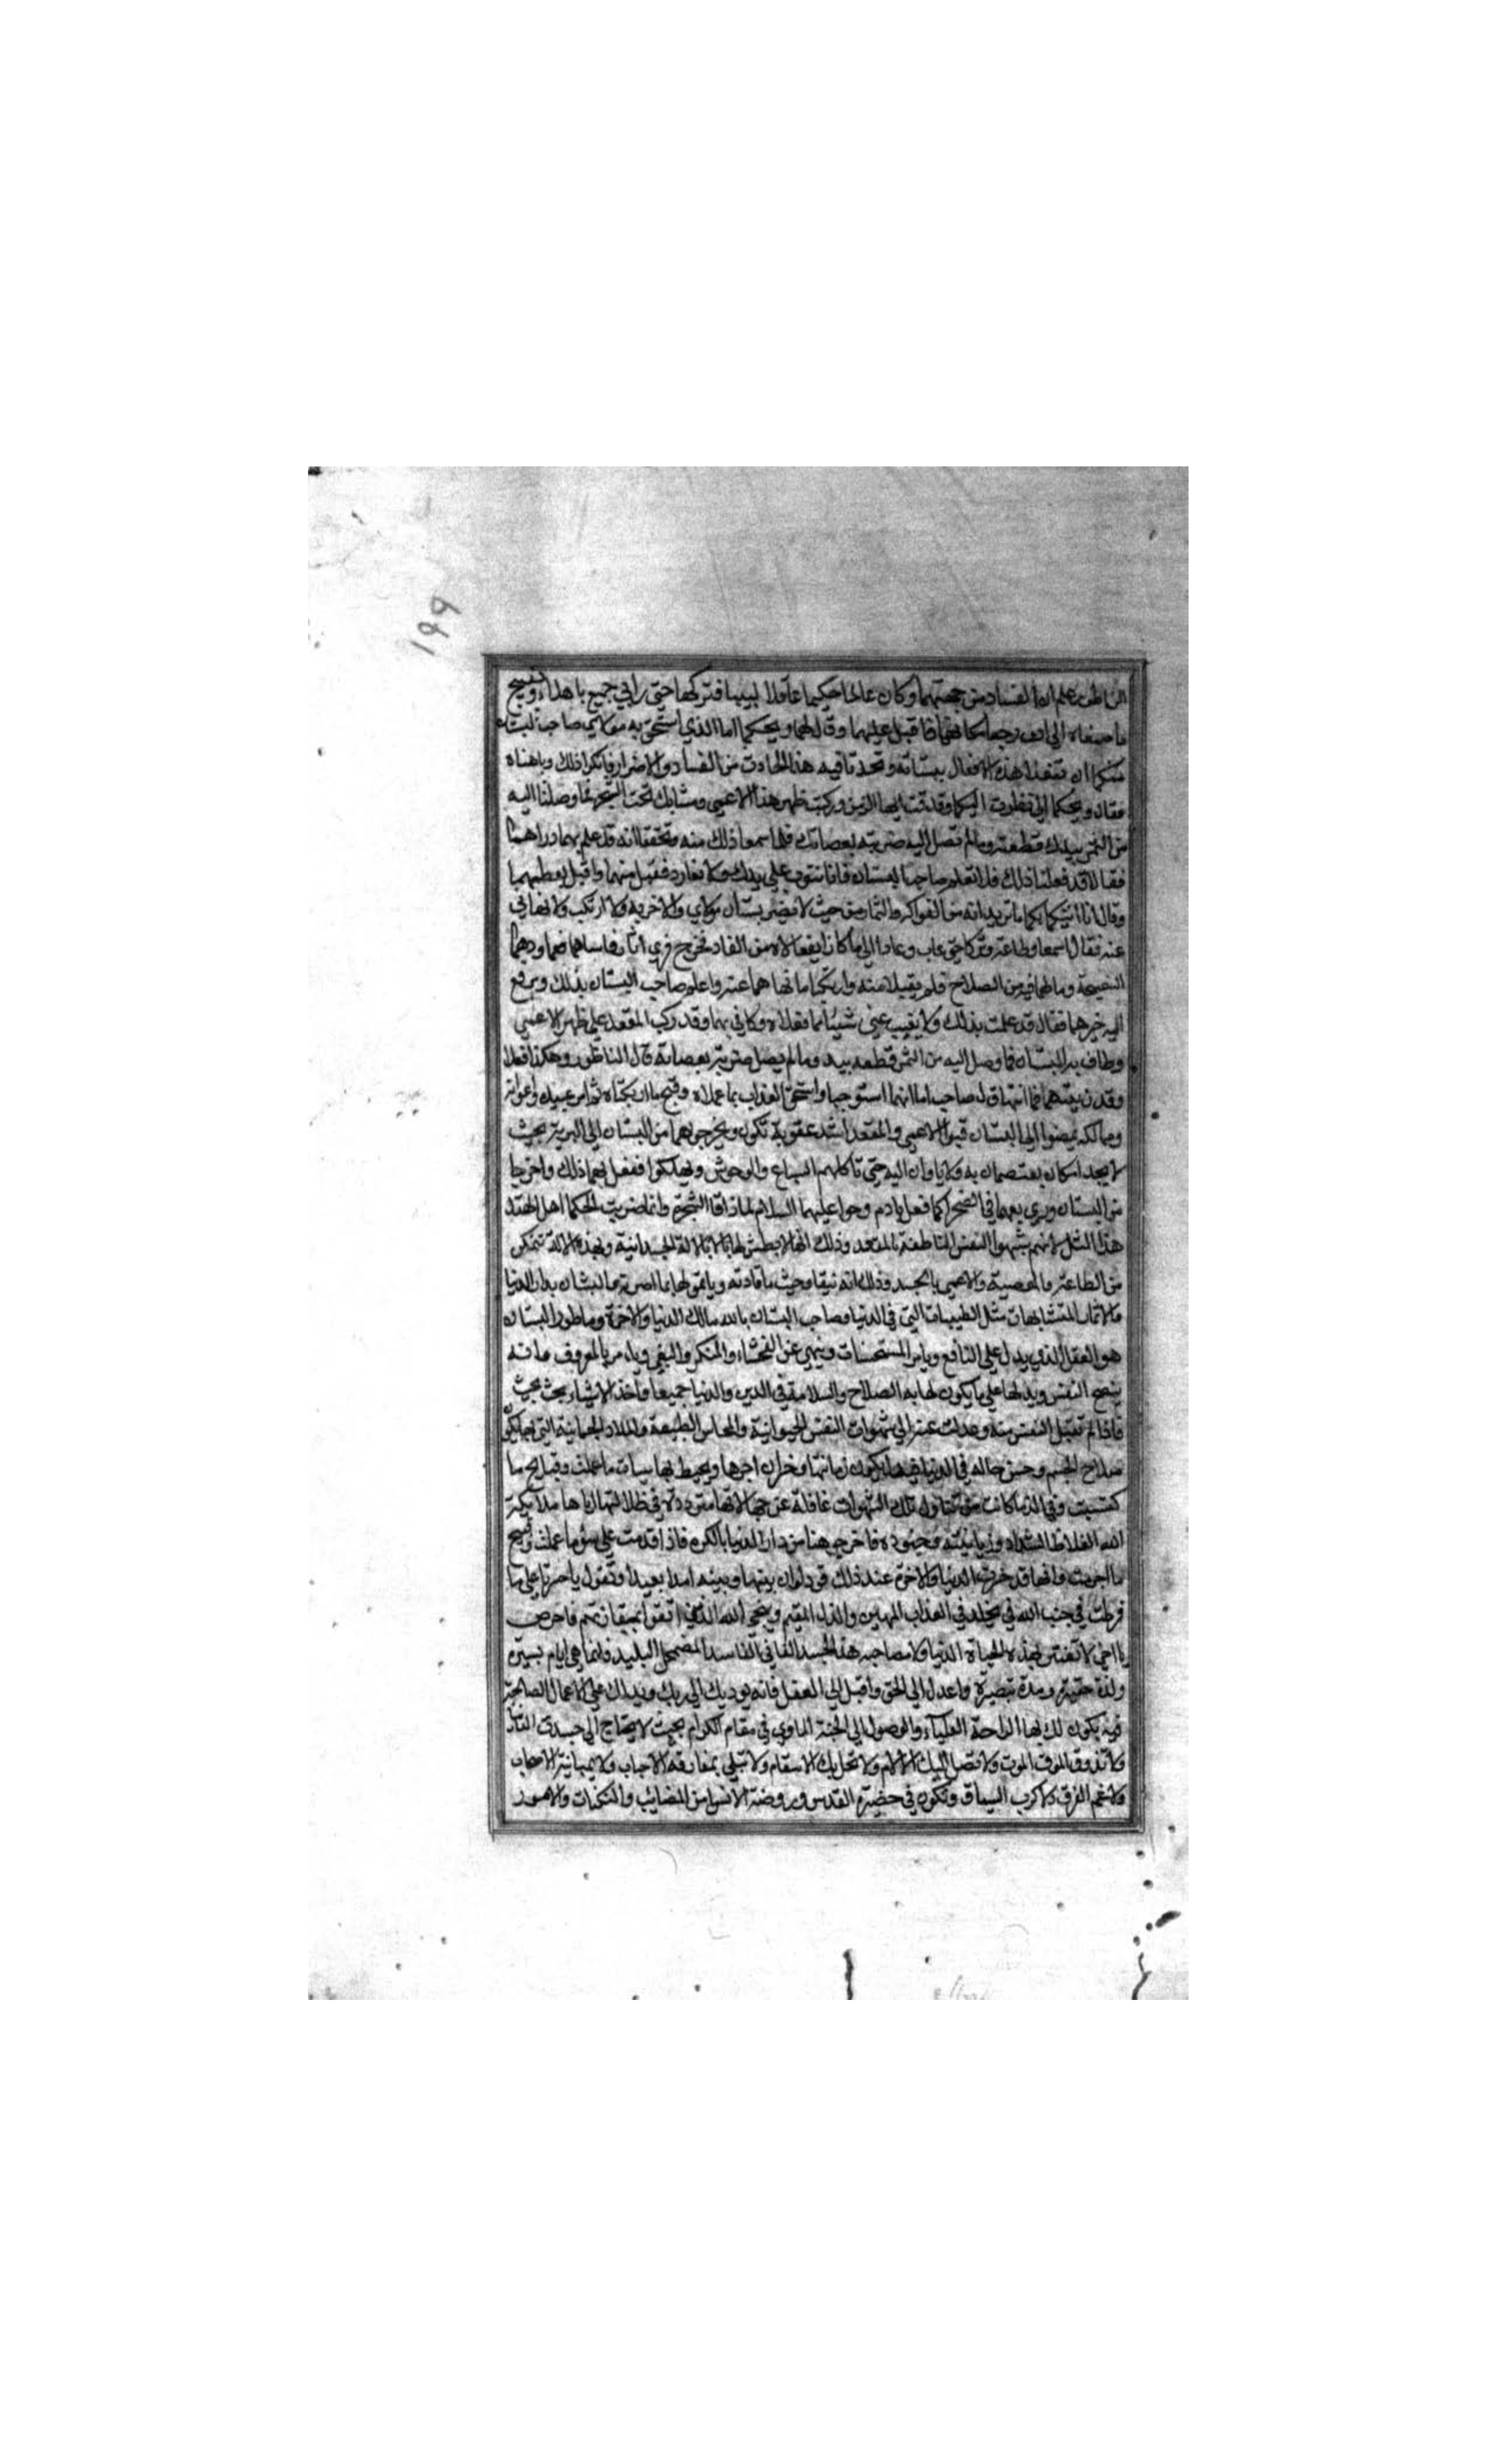 ۱۹۹
الناطور علم ان الفساد من جهتهما وكان عالما حكيما عاقلا لبيبا فتركهما حتى راي جميع ما هذا وقبيح
ما صنعاه الى ان رجعا مكانهما فاقبل عليهما وقال لهما ويحكما اما الذي استحق به مولاي صاحب البستان
منكما ان تفعلا هذه الافعال ببستانه وتحدثا فيه هذا الحادث من الفساد والاضرار فانكرا ذلك وباهتاه
فقال ويحكما اني نظرت اليكما وقد قمت ايها الزمن وركبت ظهر هذا الاعمى ومشا بك تحت الشجر فما وصلنا اليه
من الثمر بيدك قطعته وما لم تصل اليه ضربته بعصاتك فلما سمعا ذلك منه وتحققا انه قد علم بهما وراهما
فقالا قد فعلنا ذلك فلا تعلم صاحب البستان فانا نتوب على يدك ولا نعاود فقبل منهما واقبل يعظهما
وقال انا اتيكما بكما ما تريدانه من الفواكه والثمار من حيث لا يضر بستان مولاي
عنه فقالا سمعا وطاعة وتركا حتى غاب وعادا الى ما كانا يفعلانه من الفساد فخرج فراي
النصيحة وما لهما فيه من الصلاح فلم يقبلا منه وارتكبا ما نهاهما عنه واعلم صاحب البستان بذلك ورفع
اليه خبرهما فقال قد علمت بذلك ولا يغيب عني شيئا مما فعلاه وكاني بهما وقد ركب المقعد على ظهر الاعمى
وطاف به البستان فما وصل اليه من الثمر قطعه بيده وما لم يصل ضربته بعصاته قال الناطور وهكذا فعلا
وقد نهيتهما فما انتهيا قال صاحب اما انهما استوجبا واستحقا العذاب بما عملاه وقبح ما ارتكباه ثم امر عبيده واعوانه
ومماليكه يمضوا الى البستان الاعمى والمقعد اشد عقوبة تكون ويخرجوهما من البستان الى البرية بحيث
لا يجدا مكان يعتصمان به ولا ياويان اليه حتى تاكلهم السباع والوحوش ويهلكوا ففعل بهما ذلك واخرجا
من البستان ورمي بهما في الصحرا كما فعل بادم وحوا عليهما السلام لما ذاقا الشجرة وانما ضربت الحكما اهل الهند
هذا المثل لانهم شبهوا النفس الناطقة بالمقعد وذلك انها لا بطش لها الا بالالة الجسدانية وبهذه الالة تتمكن
من الطاعة والمعصية والاعمى بالجسد وذلك انه ينقاد حيث ما قادته وياتمر لها بما امرته والبستان بدار الدنيا
والاثمار المتشابهات مثل الطيبات التي في الدنيا وصاحب البستان بالله مالك الدنيا والاخرة وناطور البستان
هو العقل الذي يدل على المنافع ويامر المستحسنات وينهى عن الفحشاء والمنكر والبغي ويامر بالمعروف وانه
ينصح النفس ويدلها على ما يكون لها به الصلاح والسلامة في الدين والدنيا جميعا وتاخذ الاشياء بحيث بحيث
فاذا لم تقبل النفس منه وعدلت عنه الى شهوات النفس الحيوانية والمحاس الطبيعة والملاد الجسمانية التي بها يكون
صلاح الجسم وحسن حاله في الدنيا زمانها وخسران اجرها ويحيط بها سيئات ما عملت وقبايح ما
كتسبت وفي الدنيا كانت من تتناول تلك الشهوات غافلة عن جهالاتها مترددة في ظلالتها اتاها ملائكة
الله الغلاظ الشداد وزبانيته وجنوده فاخرجوها من دار الدنيا بالكره فاذا قدمت على سؤ ما عملت وقبيح
ما اجرمت وانها قد خسرت الدنيا والاخرة عند ذلك تود لو ان بينها وبينه امدا بعيدا وتقول يا حسرتا على ما
فرطت في جنب الله في يخلد في العذاب المهين والذل المقيم وينجي الله الذين اتقوا بمفازتهم فاحرص
يا اخي لا تفتتن بهذه الحياة الدنيا ولا مصاحبة هذا الجسد الفاني الفاسد المضمحل البليد وانما هي ايام يسيرة
ولذة حقيرة ومدة قصيرة واعدل الى الحق واقبل الى العقل فانه يوديك الى ربك ويدلك على الاعمال الصالحة
يكون لك بها الراحة العلياء والوصول الى الجنة الماوى في مقام الكرام بحيث لا يحتاج الى جسدك
ولا تذوق الموت ولا تصل اليك الالام ولا تحل بك الاسقام ولا تبلى بمفارقة الاحباب ولا بمباينة الاصحاب
ولا غم الفرق ولا كرب السياق وتكون في حضرة القدس وروضة الانس من المصائب والنكبات والامور